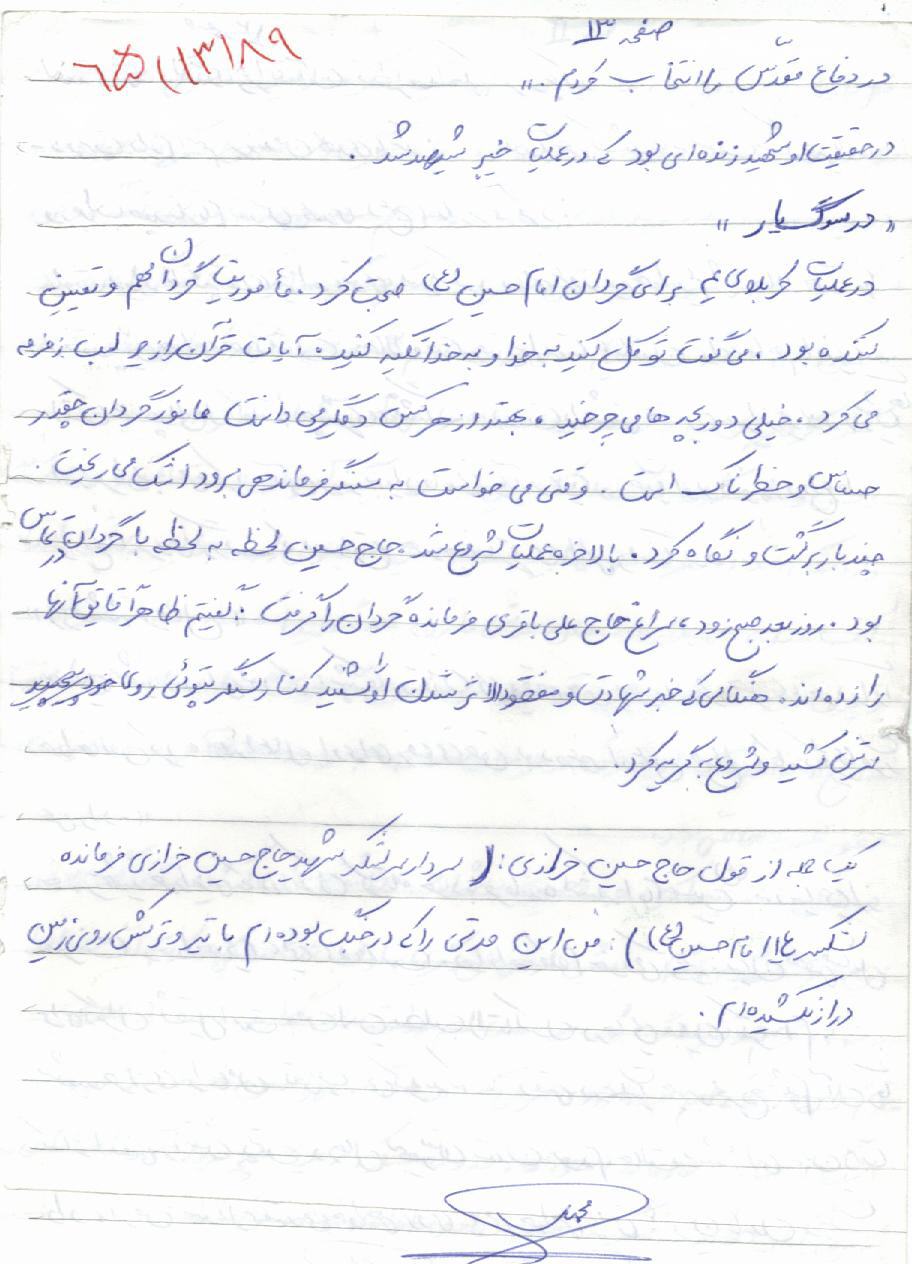 صفحه ۱۳
در دفاع مقدّس را انتخاب کردم. »
در حقیقت او شهید زنده‌ای بود که در عملیات خیبر شهید شد.
« در سوگ یار »
در عملیات کربلای ۴ برای گردان امام حسین (ع) صحبت کرد. مأموریت گردان مهم و تعیین
کننده بود. می‌گفت توکل کنید به خدا و به خدا تکیه کنید. آیات قرآن را زیر لب زمزمه
می‌کرد. خیلی دور بچه‌ها می‌چرخید. بهتر از هر کس دیگری می‌دانست مانور گردان چقدر
حساس و خطرناک است. وقتی می‌خواست به سنگر فرماندهی برود اشک می‌ریخت.
چند بار برگشت و نگاه کرد. بالاخره عملیات شروع شد. حاج حسین لحظه به لحظه با گردان در تماس
بود. روز بعد صبح زود، سراغ حاج علی باقری فرمانده گردان را گرفت. گفتیم ظاهراً قایق آنها
را زده‌اند. هنگامی که خبر شهادت و مفقودالاثر شدن او را شنید کنار سنگر پتوئی روی
سرش کشید و شروع به گریه کرد.
از قول حاج حسین خرازی: (سردار سرلشگر شهید حاج حسین خرازی فرمانده
لشگر ۱۴ امام حسین (ع)) : من این مدتی را که در جنگ بوده‌ام با تیر و ترکش روی زمین
دراز نکشیده‌ام.